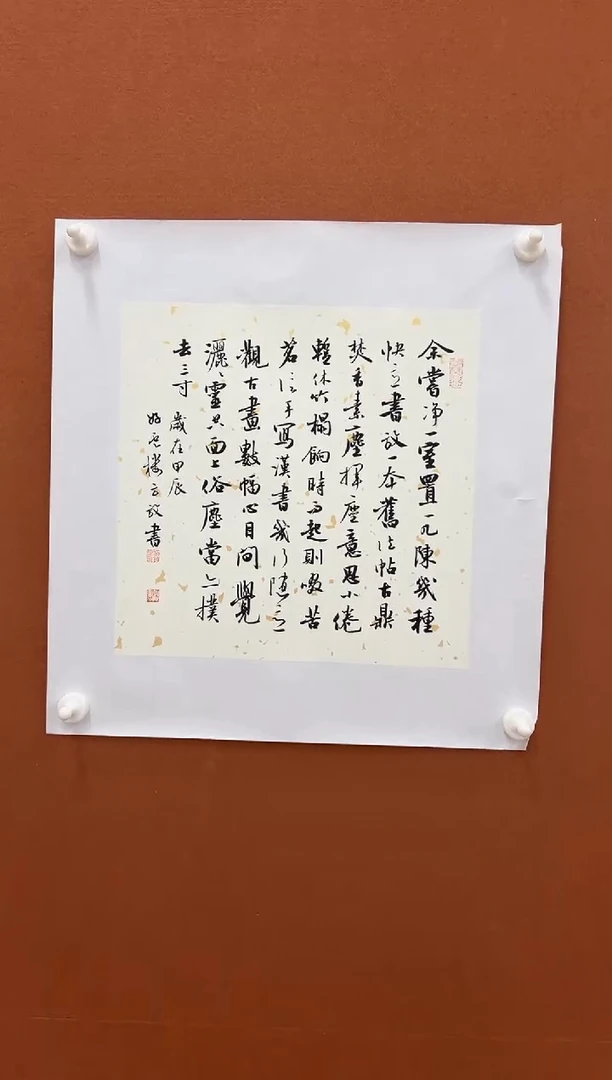 余嘗净一室置一几陳幾種
快意書放一本舊法帖古鼎
焚香素麈揮塵意思小倦
暫休竹榻餉時而起則啜苦
茗信手寫漢書幾行隨意
觀古畫數幅心目間覺
灑〻靈空面上俗塵當亦撲
去三寸 歲在甲辰
樓 書